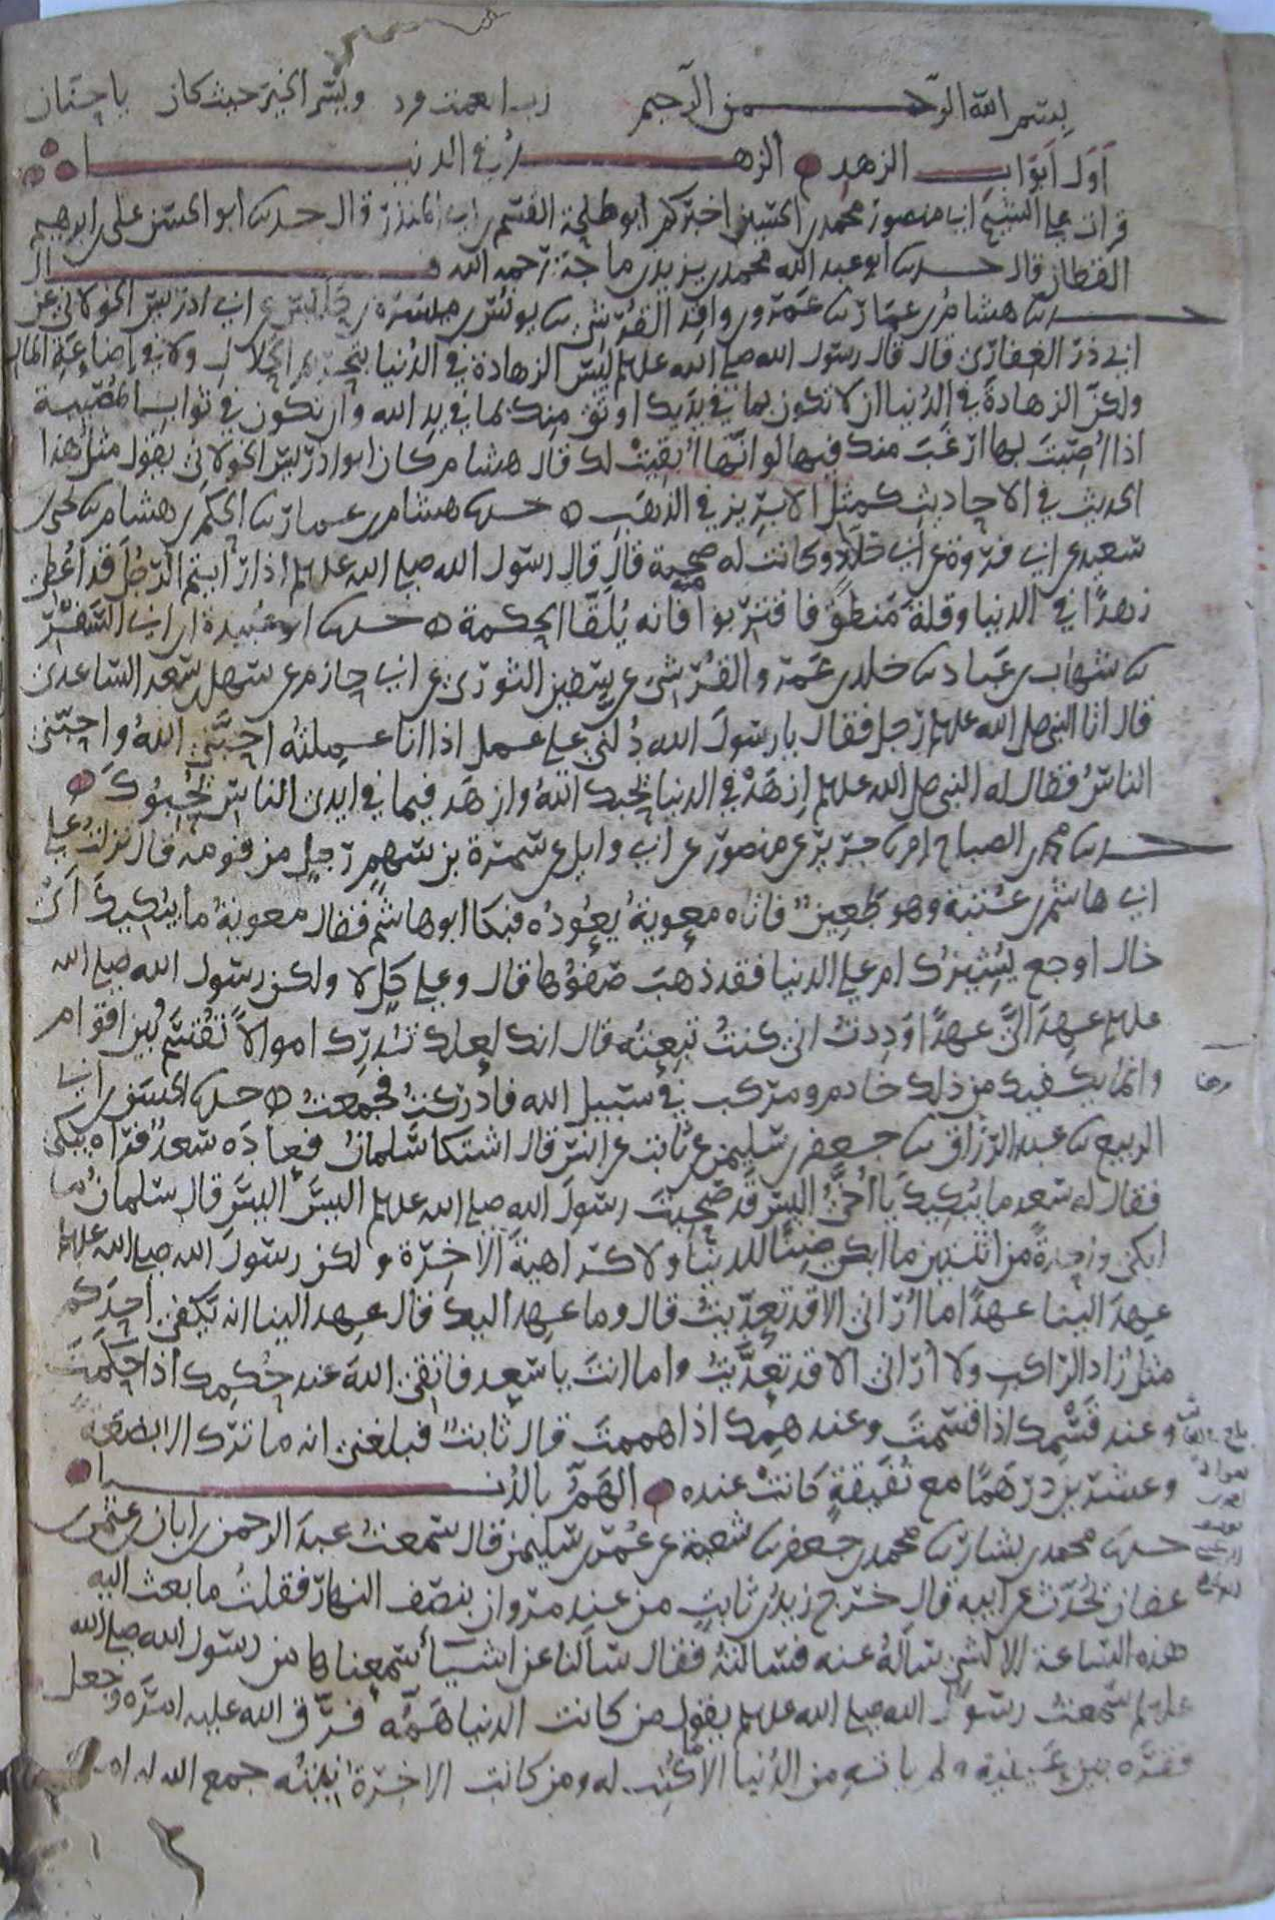 بسم الله الرحمن الرحيم رب انعمت فزد ويسر الخير حيث كان يا حنان
اول ابواب الزهد الزهد في الدنيا
قرات على الشيخ ابي منصور محمد بن الحسين اخبركم ابو طلحة القسم بن ابي المنذر قال حدثنا ابو الحسن علي بن ابرهيم
القطان قال حدثنا ابو عبد الله محمد بن يزيد بن ماجة رحمه الله قال
حدثنا هشام بن عمار ثنا عمرو بن واقد القرشي ثنا يونس بن ميسرة بن حلبس عن ابي ادريس الخولاني عن
ابي ذر الغفاري قال قال رسول الله صلى الله عليه وسلم ليس الزهادة في الدنيا بتحريم الحلال ولا في اضاعة المال
ولكن الزهادة في الدنيا ان لا تكون بما في يديك اوثق منك بما في يد الله وان تكون في ثواب المصيبة
اذا اصبت بها ارغب منك فيها لو انها ابقيت لك قال هشام كان ابو ادريس الخولاني يقول مثل هذا
الحديث في الاحاديث كمثل الابريز في الذهب ه حدثنا هشام بن عمار ثنا الحكم بن هشام ثنا يحيى بن
سعيد عن ابي فروة عن ابي خلاد وكانت له صحبة قال قال رسول الله صلى الله عليه وسلم اذا رايتم الرجل قد اعطي
زهدا في الدنيا وقلة منطق فاقتربوا منه فانه يلقا الحكمة ه حدثنا ابو عبيدة بن ابي السفر
ثنا شهاب بن عباد ثنا خلد بن عمرو القرشي عن سفين الثوري عن ابي حازم عن سهل بن سعد الساعدي
قال اتا النبي صلى الله عليه وسلم رجل فقال يا رسول الله دلني على عمل اذا انا عملته احبني الله واحبني
الناس فقال له النبي صلى الله عليه وسلم ازهد في الدنيا يحبك الله وازهد فيما في ايدي الناس يحبوك ه
حدثنا محمد بن الصباح انا جرير عن منصور عن ابي وايل عن سمرة بن سهم رجل من قومه قال نزلت على
ابي هاشم بن عتبة وهو طعين فاتاه معوية يعوده فبكا ابو هاشم فقال معوية ما يبكيك اي
خال اوجع يشئزك ام على الدنيا فقد ذهب صفوها قال وعلى كل لا ولكن رسول الله صلى الله
عليه وسلم عهد الي عهدا وددت اني كنت تبعته قال انك لعلك تدرك اموالا تقسم بين اقوام
وانما يكفيك من ذلك خادم ومركب في سبيل الله فادركت فجمعت ه حدثنا الحسن بن ابي
الربيع ثنا عبد الرزاق ثنا جعفر بن سليمن عن ثابت عن انس قال اشتكا سلمان فعاده سعد فراه يبكي
فقال له سعد ما يبكيك يا اخي اليس قد صحبت رسول الله صلى الله عليه وسلم اليس اليس قال سلمان ما
ابكي واحدة من اثنتين ما ابكي ضنا للدنيا ولا كراهية الاخرة ولكن رسول الله صلى الله عليه وسلم
عهد الينا عهدا ما اراني الا قد تعديت قال وما عهد اليك قال عهد الينا انه يكفي احدكم
مثل زاد الراكب ولا اراني الا قد تعديت واما انت يا سعد فاتقي الله عند حكمك اذا حكمت
وعند قسمك اذا قسمت وعند همك اذا هممت قال ثابت فبلغني انه ما ترك الا بضعة
وعشرين درهما مع نفيقة كانت عنده الهم بالدنيا
حدثنا محمد بن بشار ثنا محمد بن جعفر ثنا شعبة عن عمر بن سليمن قال سمعت عبد الرحمن بن ابان بن عثمن بن
عفان يحدث عن ابيه قال خرج زيد بن ثابت من عند مروان بنصف النهار فقلت ما بعث اليه
هذه الساعة الا لشي ساله عنه فسالته فقال سالنا عن اشيا سمعناها من رسول الله صلى الله
عليه وسلم سمعت رسول الله صلى الله عليه وسلم يقول من كانت الدنيا همه فرق الله عليه امره وجعل
فقره بين عينيه ولم ياته من الدنيا الا ما كتب له ومن كانت الاخرة نيته جمع الله له امره
٢